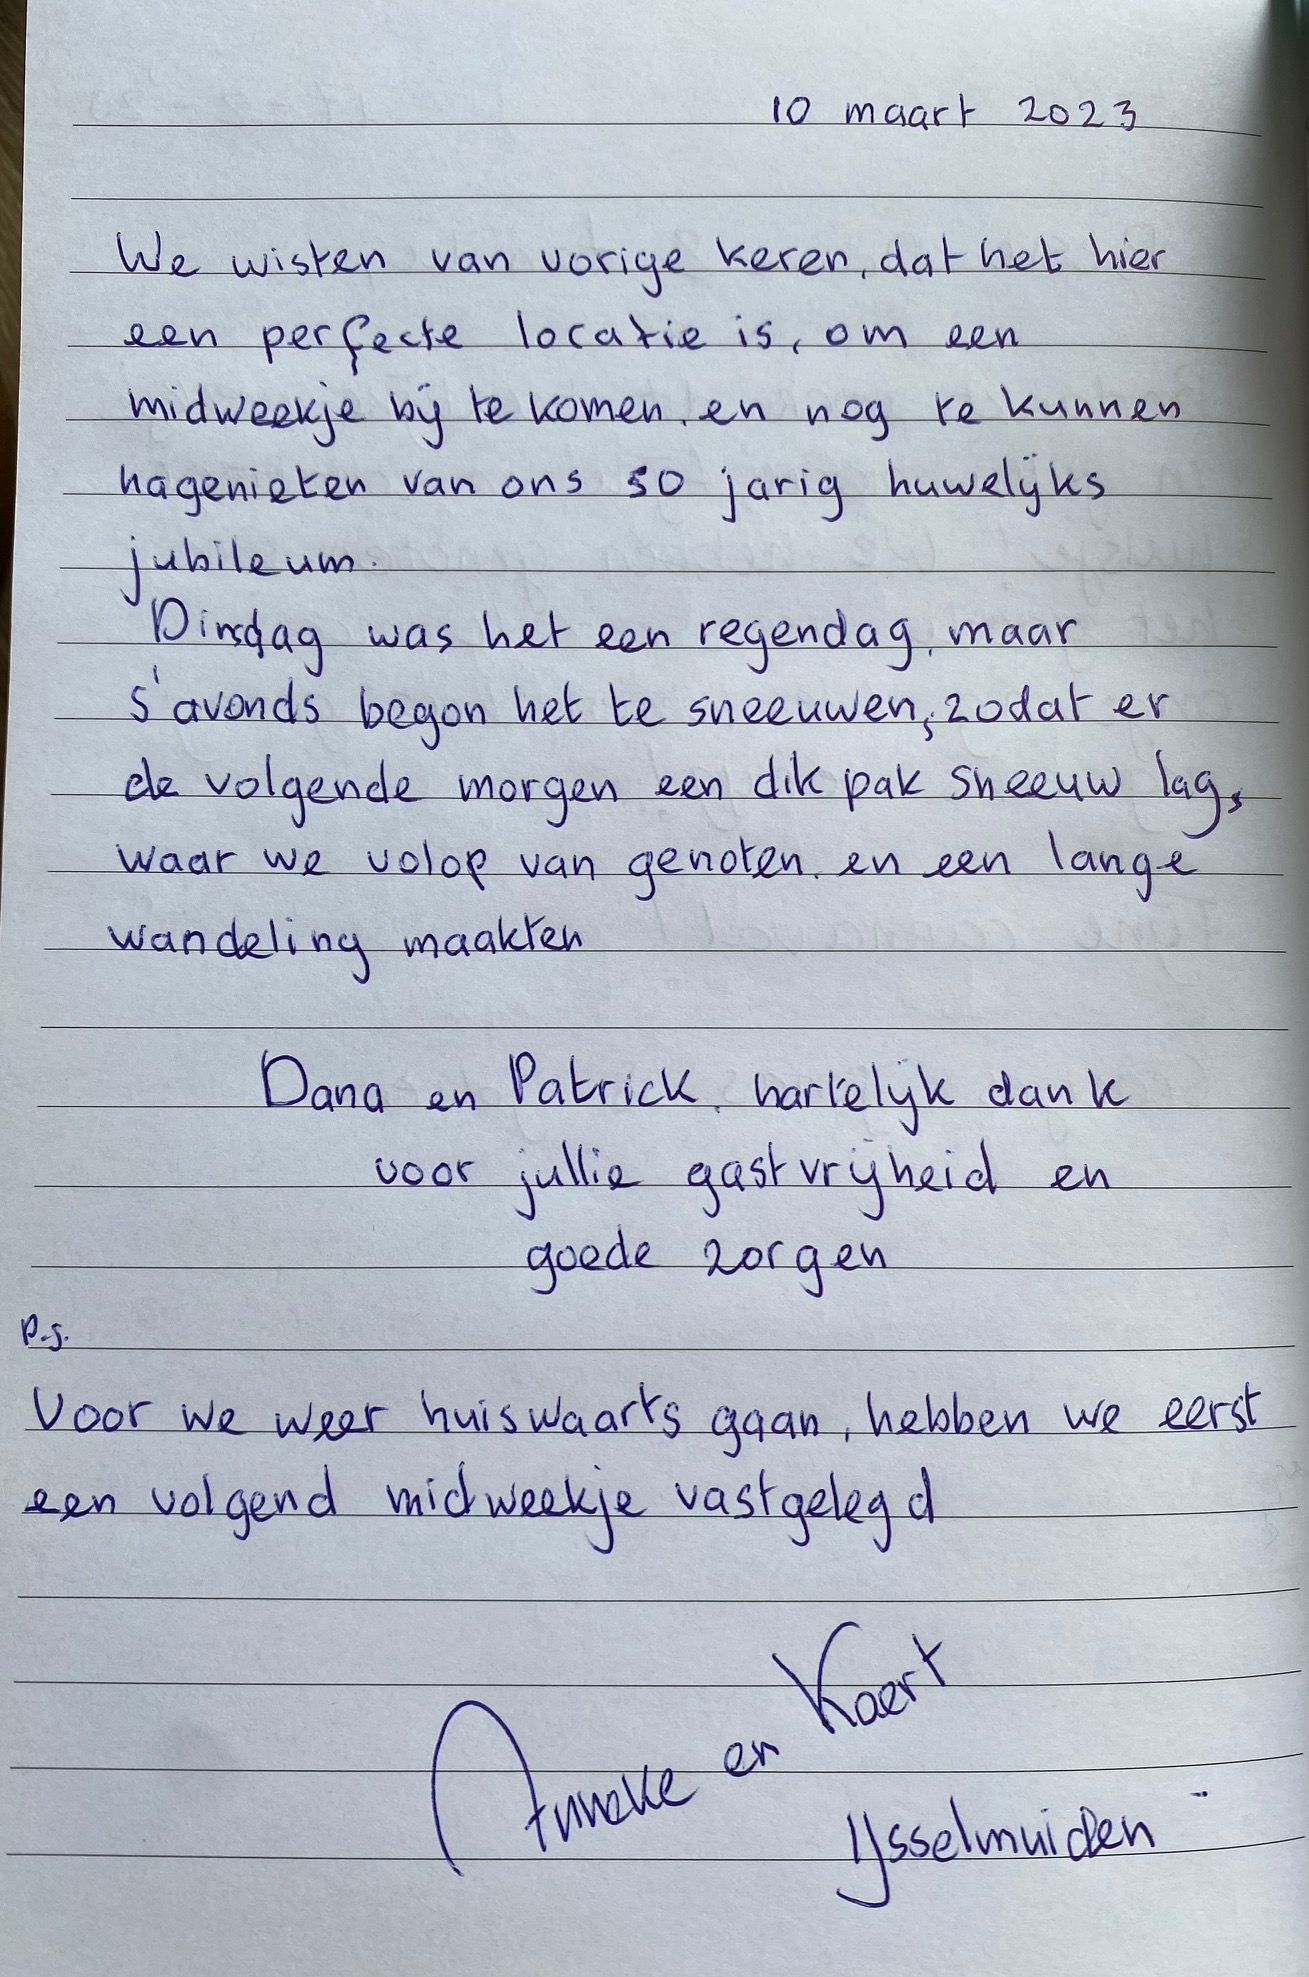 10 maart 2023
We wisten van vorige keren, dat het hier
een perfecte locatie is, om een
midweekje bij te komen, en nog te kunnen
nagenieten van ons 50 jarig huwelijks
jubileum.
Dinsdag was het een regendag, maar
s'avonds begon het te sneeuwen, zodat er
de volgende morgen een dik pak sneeuw lag,
waar we volop van genoten, en een lange
wandeling maakten
Dana en Patrick, hartelijk dank
voor jullie gastvrijheid en
goede zorgen
P.S.
Voor we weer huiswaarts gaan, hebben we eerst
een volgend midweekje vastgelegd
Anneke en Koert
IJsselmuiden